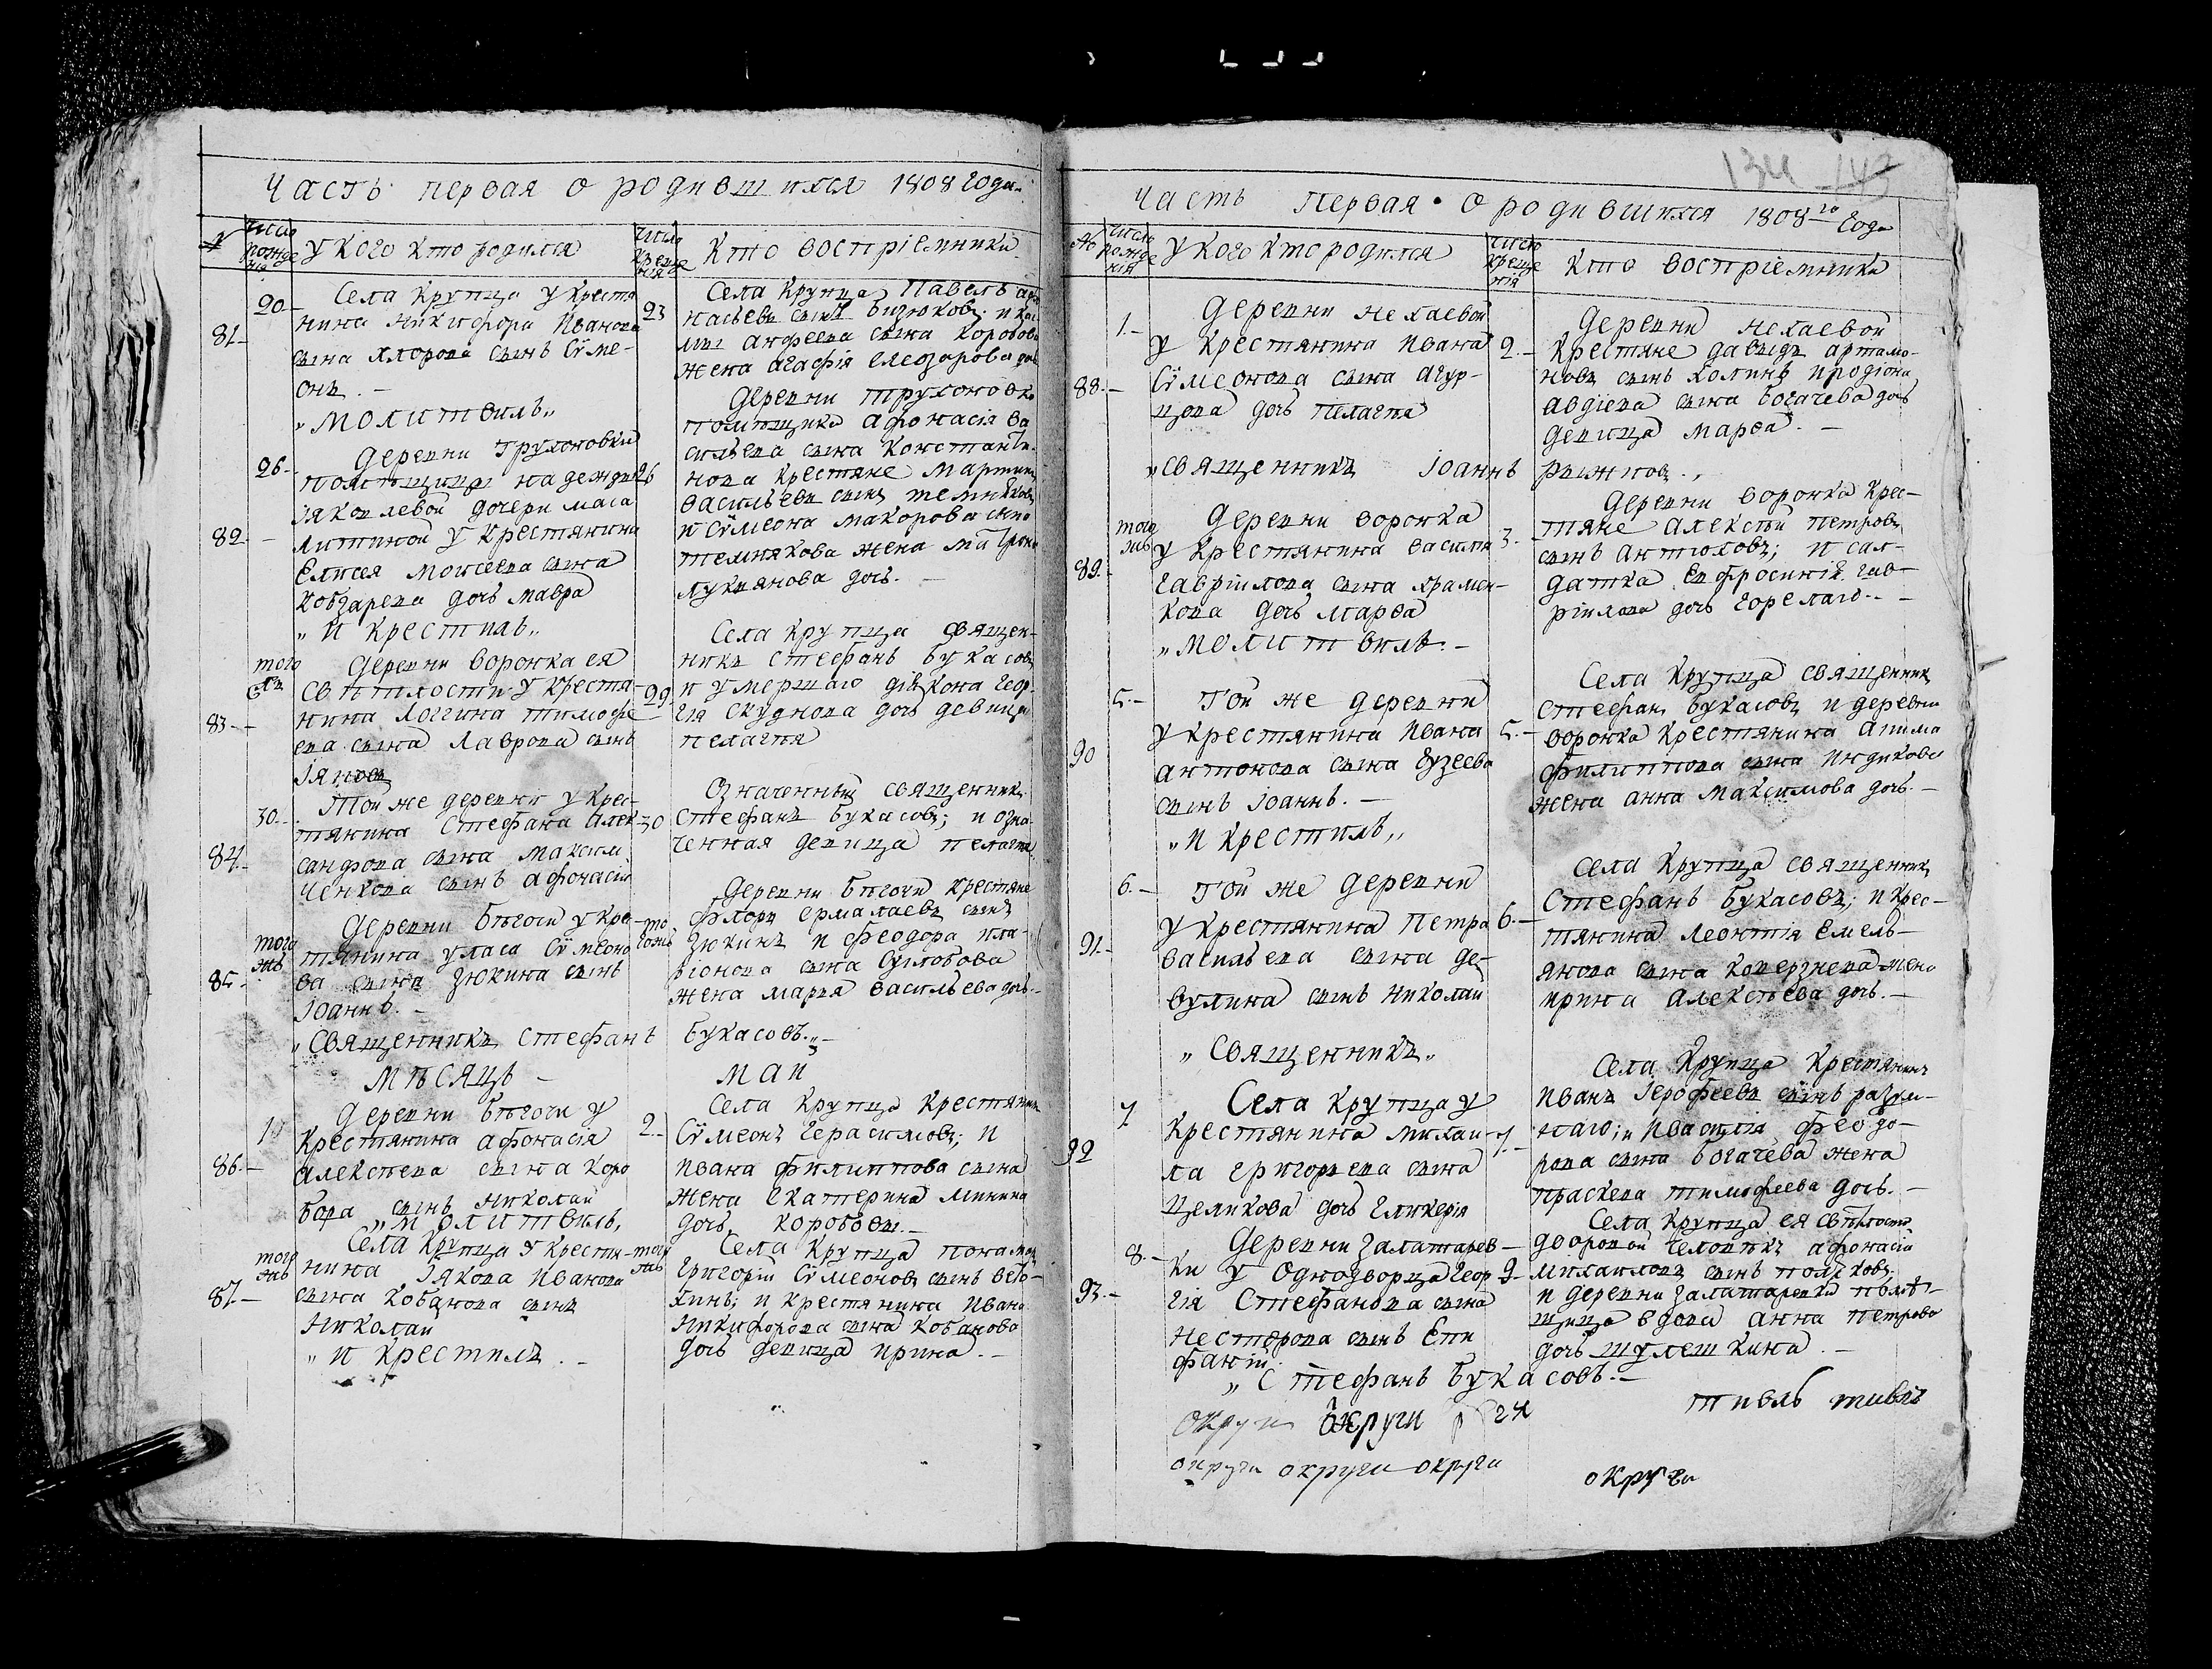 Часть первая о родившихся 1808 года
№
число рожде нія
у кого кто родился
число креще нія
кто воспріемники
81.
20
Села Крупца у крестя
нина Никифора Иванова
сына Хлопова сынъ Сѵме-
онъ. -
23
Села Крупца Павелъ
насьевъ сынъ Бизюковъ; и
Анфеева сына Коробова
жена Агафія Елеозарова доч
„молитвилъ„
82.
26.
Деревни Трухоновки
помѣщицы Надежды
Іяковлевой дочери Маса
литиной у крестянина
Елисея Моисеева сына
Кобзарева дочь Мавра
26
Деревни Трухоновки
помѣщика Афонасія Ва
сильева сына Константи-
нова крестяне Мартинъ
Васильевъ сынъ Темняковъ
и Сѵмеона Макорова сына
Темнякова жена Матрона
Лукьянова дочь. -
„и крестилъ„
83.
того
Деревни Ворожка ея
свѣтлости у крестя-
нина Логгина Тимофе
ева сына Лаврова сынъ
Іяковъ
29
Села Крупца священ-
никъ Стефанъ Букасовъ
и умершаго діякона Геор-
гія Скуднова дочь девица
Пелагія
84.
30.
Той же деревни у крес-
тянина Стефана Алек-
сандрова сына Максим
ченкова сынъ Афонасій
30
Означенный священникъ
Стефанъ Букасовъ; и озна-
ченная девица Пелагія
85.
того жъ
Деревни Бѣгочи у кре-
тянина Уласа Сѵмеоно
ва сына Зюкина сынъ
Іоаннъ. -
того жъ
Деревни Бѣгочи крестяне
Флоръ Ермалаевъ сынъ
Зюкинъ и Феодора Ила-
ріонова сына
жена Марья Васильева дочь. -
„Священникъ Стефанъ Букасовъ.„ -
Мѣсяцъ - Маи
86.
1
Деревни Бѣгочи у
крестянина Афонасія
Алексеева сына Коро
бова сынъ Николай
2.
Села Крупца крестянинъ
Сѵмеонъ Герасимовъ; и
Ивана Филиппова сына
жена Екатерина Минина
дочь Коробовы. -
„молитвилъ,
87.
того жъ
Села Крупца у крестя-
нина Іякова Иванова
сына Кобанова сынъ
Николай
того жъ
Села Крупца понамарь
Григорій Сѵмеоновъ сынъ
хинъ; и крестянина Ивана
Никифорова сына Кобанова
дочь девица Ирина. -
„и крестилъ. -
134 143
Часть первая о родившихся 1808го года
№
число рожде нія
у кого кто родился
число креще нія
кто воспріемники
88.
1.
Деревни Нехаевой
у крестянина Ивана
Сѵмеонова сына Агур-
цова дочь Пелагия
2.
Деревни Нехаевой
крестяне Давыдъ Артамо-
новъ сынъ Холинъ Иродіона
Авдіева сына Богачева дочь
девица Марѳа. -
„священникъ Іоаннъ Рыжковъ.„
89.
того жъ
Деревни Ворожка
у крестянина Василия
Гавріилова сына Крамен-
кова дочь Марѳа
3.
Деревни Ворожка крес-
тяне Алексѣй Петровъ
сынъ Антюховъ; и сал-
датка Ефросинія Гав-
ріилова дочь Горелаго. -
„молитвилъ. -
90
5.
Той же деревни
у крестянина Ивана
Антонова сына Гузеева
сынъ Іоаннъ. -
5.
Села Крупца священникъ
Стефанъ Букасовъ и деревни
Ворожка крестянина Акима
Филиппова сына Индикова
жена Анна Максимова дочь. -
„и крестилъ„
91.
6.
Той же деревни
у крестянина Петра
Васильева сына Де-
вулина сынъ Николай
6.
Села Крупца священникъ
Стефанъ Букасовъ; и крес-
тянина Леонтія Емель-
янова сына Ковергнева жена
Ирина Алексѣева дочь. -
„Священникъ„
92
7.
Села Крупца у
крестянина Михаи-
ла Григорьева сына
Целикова дочь Гликерія
7.
Села Крупца крестянинъ
Иванъ Іерофеевъ сынъ Разум-
наго; и Феодо-
рова сына Богачева жена
Праскева Тимофеева дочь. -
93.
8.
Деревни Залатарев-
ки у однодворца Геор
гія Стефанова сына
Нестерова сынъ Епи
фаній.
9
Села Крупца ея свѣтлости
дворовой человѣкъ Афонасій
Михаиловъ сынъ Поляковъ;
и деревни Залатаревки помѣ-
щица вдова Анна Петрова
дочь Шулешкина. -
„Стефанъ Букасовъ. -
округи округи
тивлъ тивлъ
округи округи округи
округи